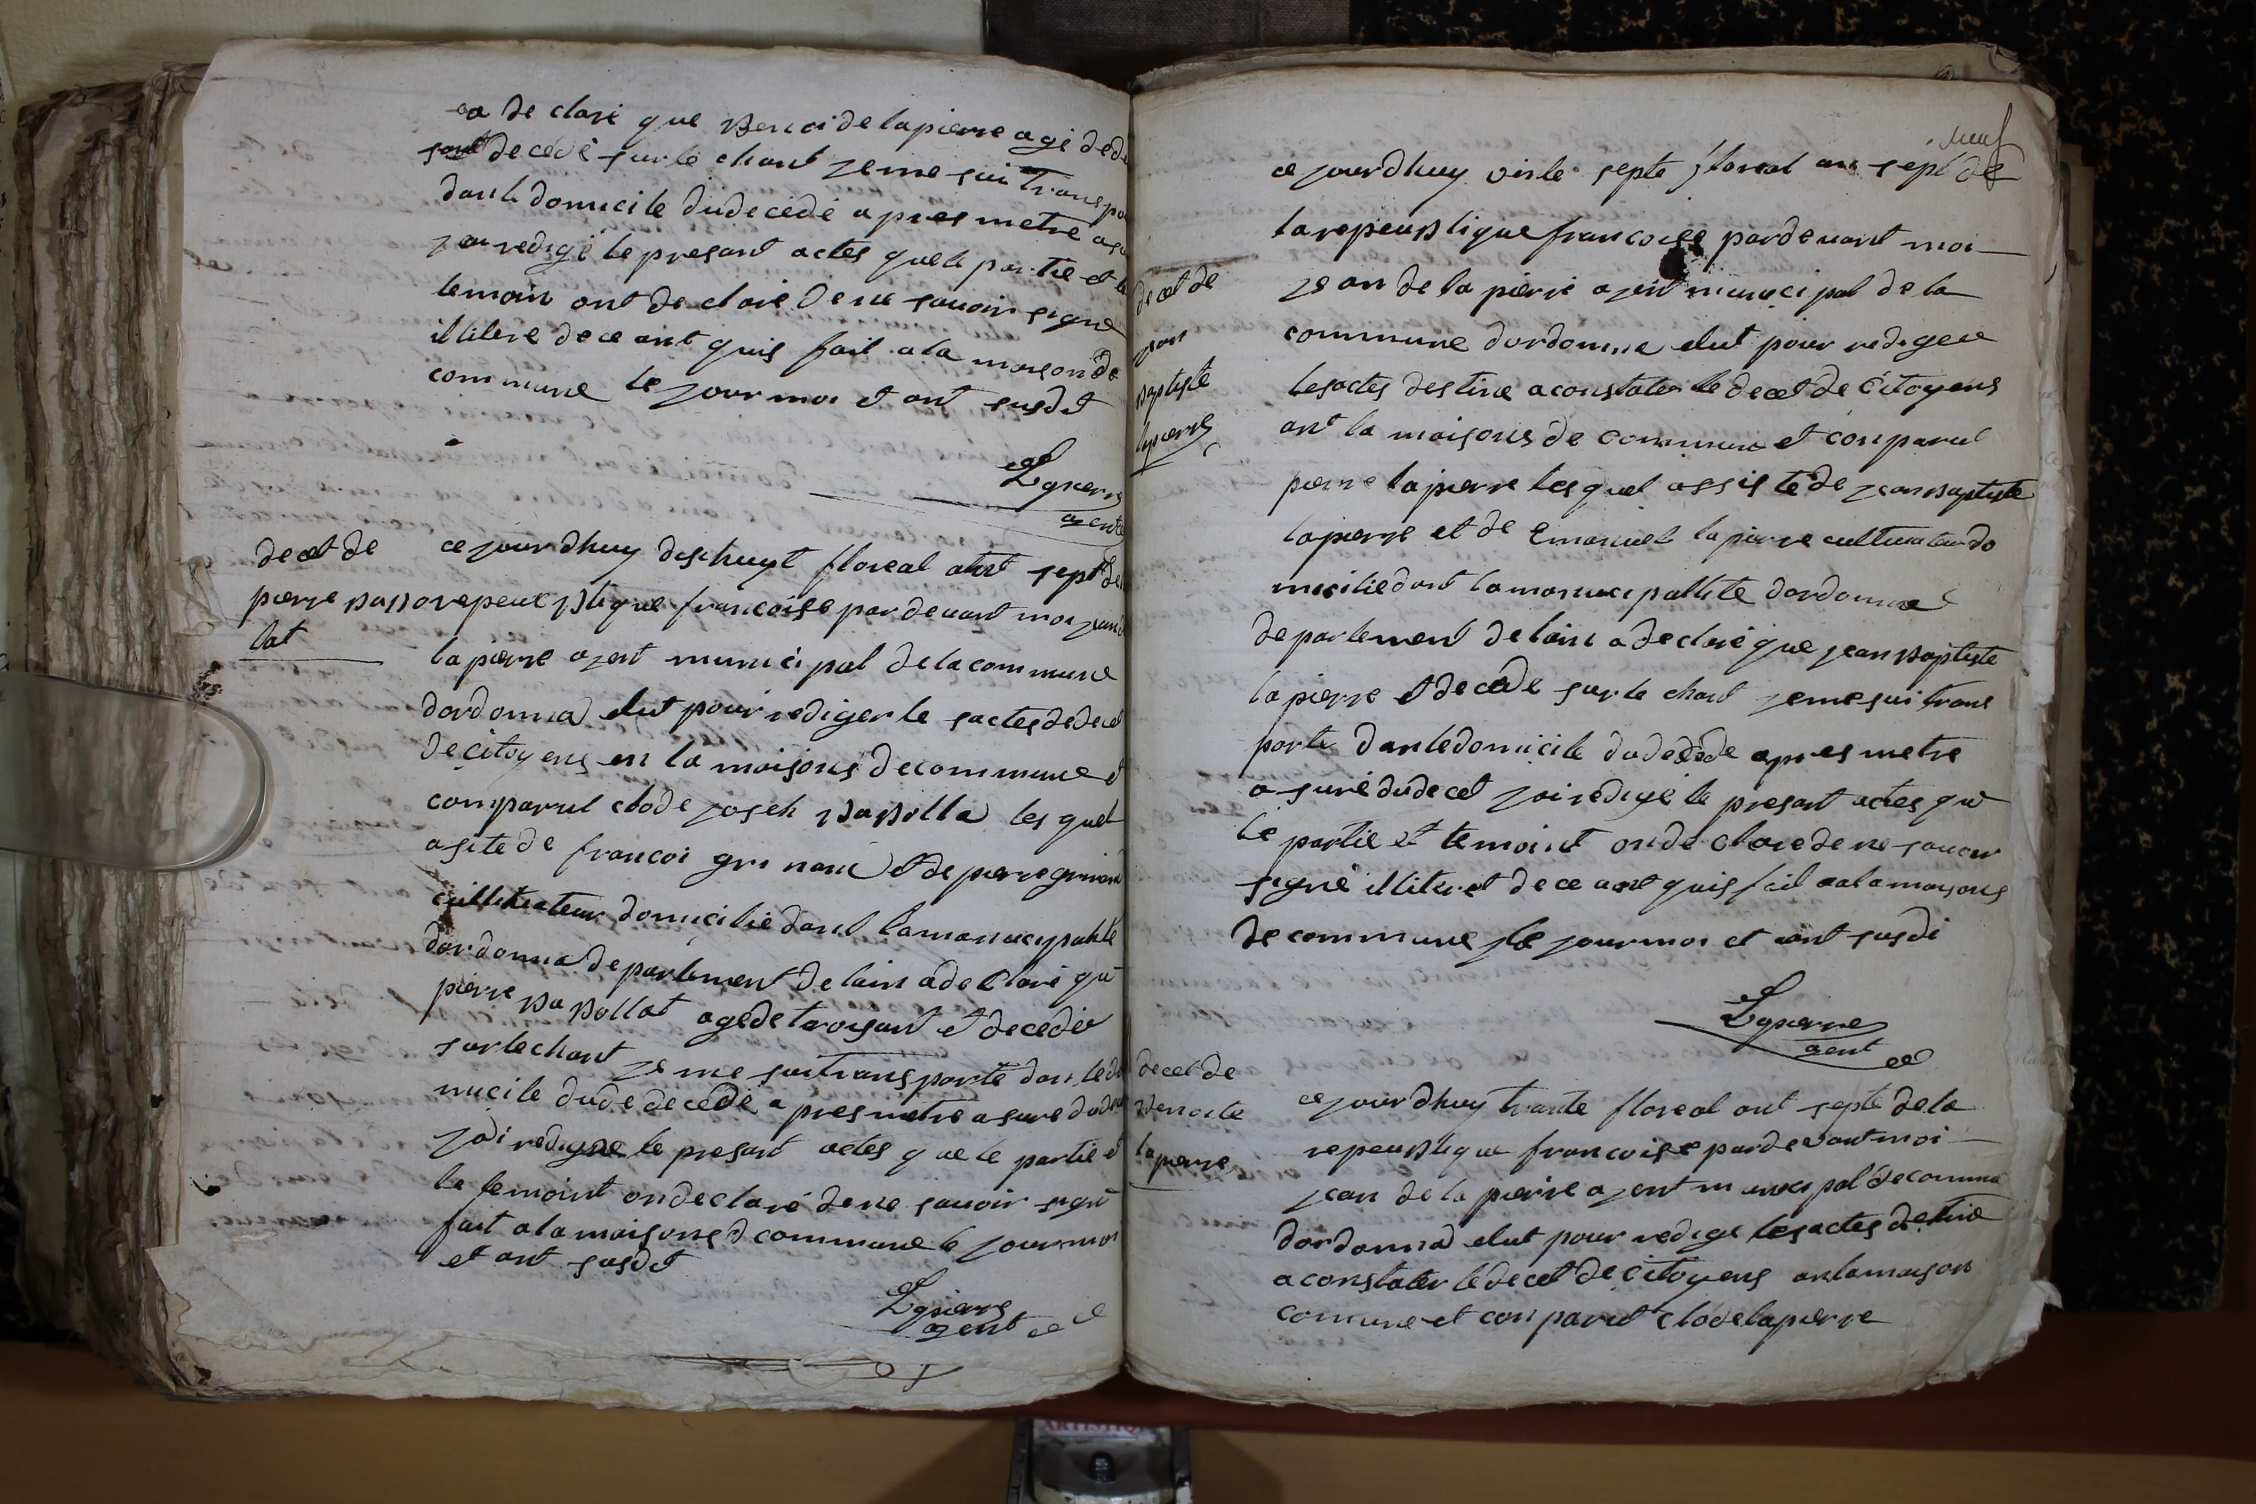 a de claré que Benoi de lapierre agé de de
sant decedé sur le chant je me sui transpo
dan le domicile dudecedé a pres metre asu
jai redigé le presant actes que le partie et le
temoin ont de claré de ne savoir signé
illitere de ce ant quis fait a la maison de
commune le jour moi et ant susdit
Lapierre
agent
decet de
pierre Babo
lat
ce jour dhuy dishuyt floreal ant sept de
repeublique francoise par devant moi jean de
la pierre agent municipal de la commune
dordonna elut pour rediger le sactes de decet
de citoyens en la maisons de commune et
comparut clode joseh Babolla lesquel
asite de francoi grinand et de pierre grinand
cultivateur domicilié dant la manucipalité
dordonna departement de lain a declaré que
pierre Babollat agé de troisant et decedée
sur lechant je me sui transporté dan le do
micile dude decedé a pres metre a suré dudecet
jai redigee le presant actes que le partie et
le temoint on declaré de ne savoir signé
fait a la maisons d commune le jour moi
et ant susdit
Lapierre
agent
neuf
decet de
jean
Baptiste
lapierre
ce jour dhuy vinte septe floreal ans sept de
la repeublique francoise pardevant moi
jean de la pierre ajent municipal de la
commune dordonna elut pour redigere
les actes destine a constater le decet de citoyens
ant la maisons de commune et comparut
pierre lapierre les quel assisté de jean Baptiste
lapierre et de Emanuel lapierre cultivateur do
micilié dant la manucipallité dordonna
departement de lain a declaré que jean Baptiste
lapierre et decedé sur le chant je me sui trans
porte dan le domicile du decede apres metre
a suré dudecet jai redigé le presant actes que
le partie et temoint on de claré de ne savoir
signé illiteret de ce ant quis fait a la maisons
de commune le jour moi et ant susdi
Lapierre
agent
decet de
Benoite
lapierre
ce jour dhuy trante floreal ant septe de la
repeublique francoise pardevant moi
jean de la pierre ajent municipal de commune
dordonna elut pour redige les actes destine
a constater le decet de citoyens an la maison
comune et con parut clode lapierre